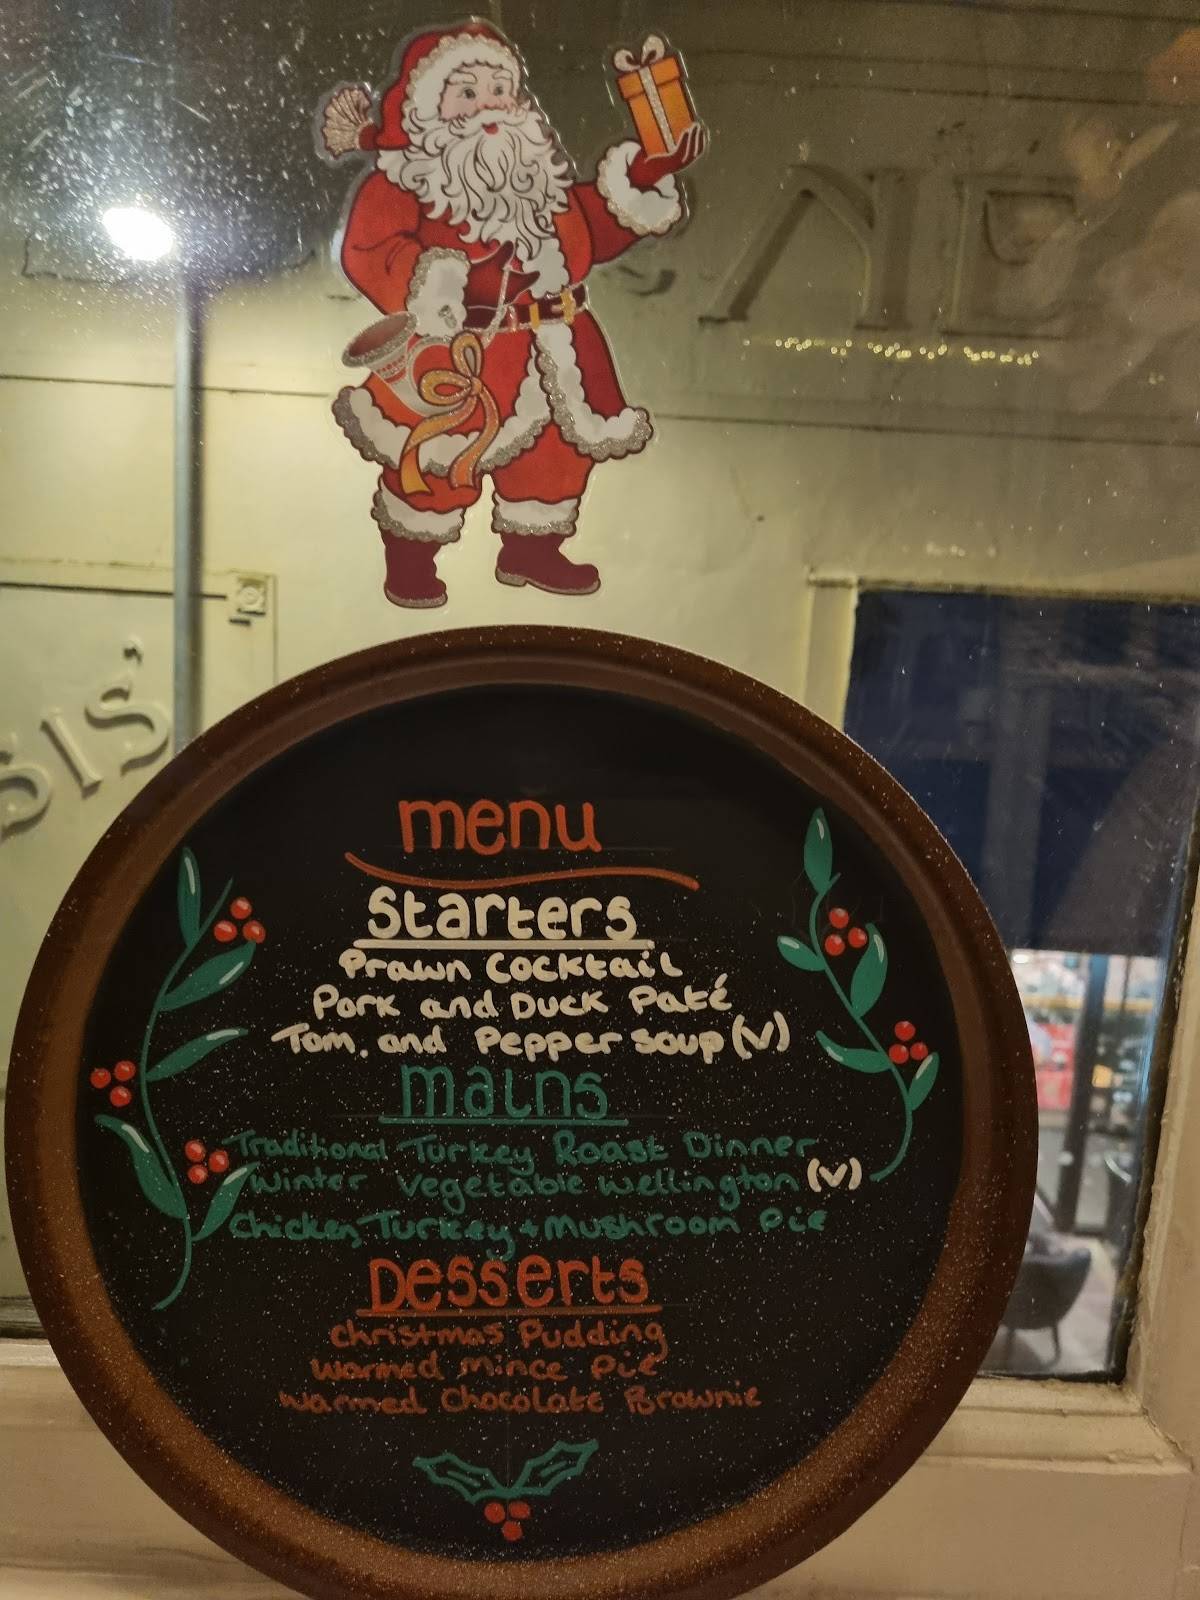 NE
SIS'
menu
Starters
Prawn Cocktail
Pork and Duck Paté
Tom. and Pepper Soup (V)
mains
Traditional Turkey Roast Dinner
Winter Vegetable Wellington (V)
Chicken, Turkey + Mushroom Pie
Desserts
Christmas Pudding
Warmed Mince Pie
Warmed Chocolate Brownie